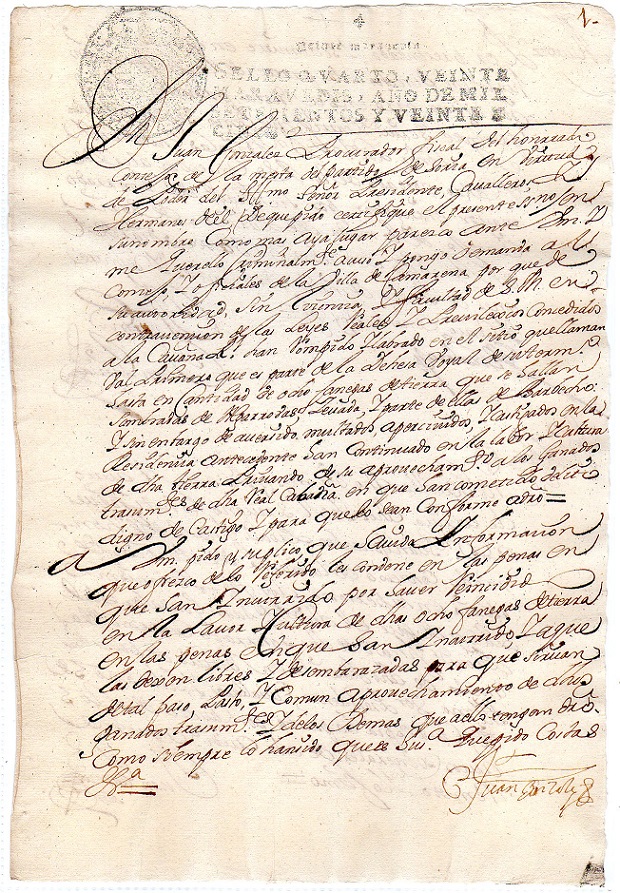 1.
SELLO QVARTO, VEINTE
MARAVEDIS, AÑO DE MIL
SETECIENTOS Y VEINTE Y
Juan Gonzalez Procurador fiscal del honrrado
Concejo de la mesta del partido de Soria en
de Poder del Señor Presidente, Cavalleros, y
Hermanos del que el presente
su nombre Como mas aya lugar parezco ante Vm. Y
me querello Criminalm.te acuso, Y pongo demanda a el
Concejo, Y ofiziales de la Villa de por que de
su autoridad, sin licenzia, Ni facultad de S. M. en
contravencion de las Leyes Reales, Y Previlexios Concedidos
a la Cavaña R.l han Rompido, Y labrado en el sitio que llaman
Val que es parte de la Dehesa Boyal de su term.o
hasta en cantidad de ocho fanegas de tierra que se hallan
sembradas de Levada, Y parte de ellas de Barbecho:
Y sin embargo de aver sido multados apercividos, Y castigados en la
Residencia antecedente han Continuado en la labor, Y Cultura
de dha tierra Privando de su aprovecham.to a los Ganados
trasum.tes de dha Real Cabaña, en que han cometido delito
digno de Castigo Y para que lo sean Conforme a dro=
A Vm. pido y suplico que havida Informazion
que ofrezco de lo Referido les condene en las penas en
que han Incurrido por haver Reincidido
en la Lavor Y Cultura de dhas ocho fanegas de tierra
en las penas en que han Incurrido Y a que
las dexen libres, Y desembarazadas para que sirvan
de tal paso, Pasto, Y Comun aprovechamiento de dhos
ganados trasum.tes Y de los Demas que a ello tengan dro.
Como siempre lo han sido que es Jus.a que pido Costas
Juan Gonzalez